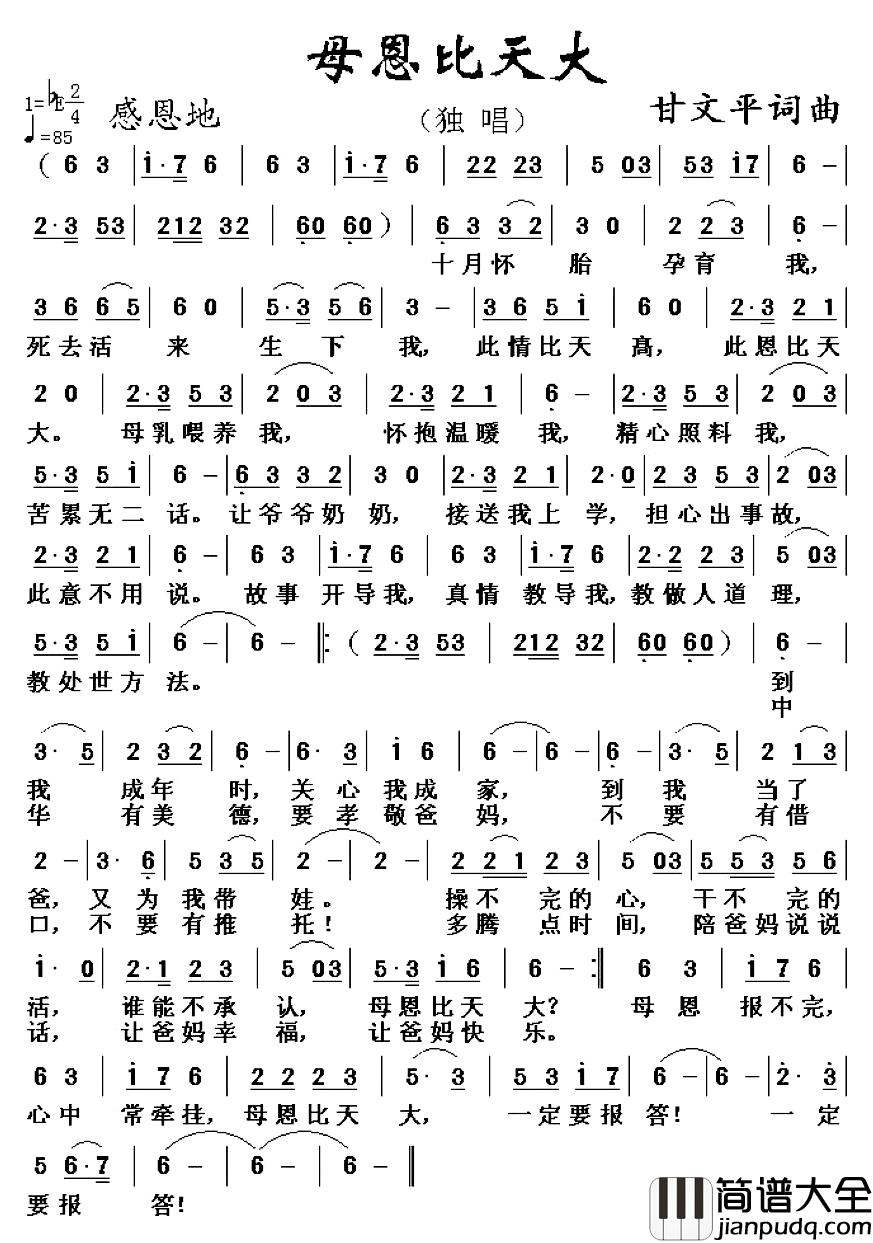 母恩比天大
1=♭E 2/4
♩=85
感恩地
(独 唱)
甘文平词曲
( 6 3 | i·7 6 | 6 3 | i·7 6 | 22 23 | 5 03 | 53 i7 | 6 - |
2·3 53 | 212 32 | 60 60 ) | 6 3 3 2 | 3 0 | 2 2 3 | 6 - |
十月怀 胎 孕育 我,
3 6 6 5 | 6 0 | 5·3 5 6 | 3 - | 3 6 5 i | 6 0 | 2·3 2 1 |
死去活 来 生 下 我, 此情比天 高, 此恩比天
2 0 | 2·3 5 3 | 2 0 3 | 2·3 2 1 | 6 - | 2·3 5 3 | 2 0 3 |
大。 母乳喂养 我, 怀抱温暖 我, 精心照料 我,
5·3 5 i | 6 - | 6 3 3 2 | 3 0 | 2·3 2 1 | 2·0 | 2 3 5 3 | 2 03 |
苦累无二 话。 让爷爷奶 奶, 接送我上 学, 担心出事 故,
2·3 2 1 | 6 - | 6 3 | i·7 6 | 6 3 | i·7 6 | 2·2 2 3 | 5 03 |
此意不用 说。 故事 开导我, 真情 教导我, 教做人道 理,
5·3 5 i | 6 - | 6 - |: ( 2·3 53 | 212 32 | 60 60 ) | 6 - |
教处世方 法。 到
中
3· 5 | 2 3 2 | 6 - | 6· 3 | i 6 | 6 - | 6 - | 3· 5 | 2 1 3 |
我 成年 时, 关心 我成 家, 到 我 当了
华 有美 德, 要孝 敬爸 妈, 不 要 有借
2 - | 3· 6 | 5 3 5 | 2 - | 2 - | 2 2 1 2 3 | 5 03 | 5 5 3 5 6 |
爸, 又为 我带 娃。 操不 完的 心, 干不 完的
口, 不要 有推 托! 多腾 点时 间, 陪爸妈说说
i· 0 | 2·1 2 3 | 5 03 | 5·3 i 6 | 6 - :| 6 3 | i 7 6 |
活, 谁能不承 认, 母恩比天 大? 母恩 报不完,
话, 让爸妈幸 福, 让爸妈快 乐。
6 3 | i 7 6 | 2 2 2 3 | 5· 3 | 5 3 i 7 | 6 - | 6 - | 2· 3 |
心中 常牵挂, 母恩比天 大, 一定要报 答! 一定
5 6·7 | 6 - | 6 - | 6 - ‖
要报 答!
简谱大全
jianpudq.com